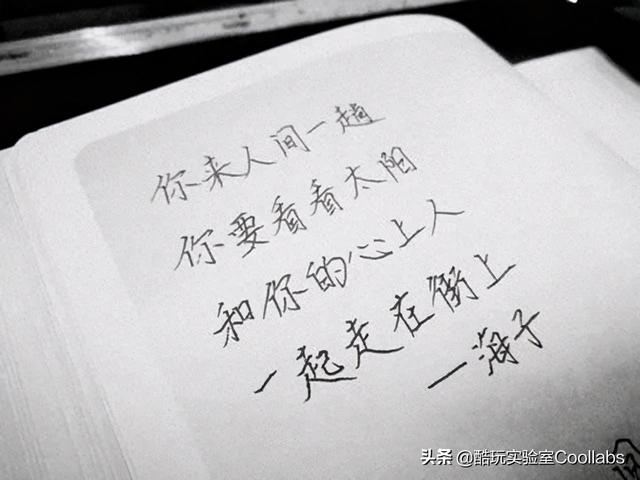 你来人间一趟
你要看看太阳
和你的心上人
一起走在街上
—海子
头条 @酷玩实验室Coollabs